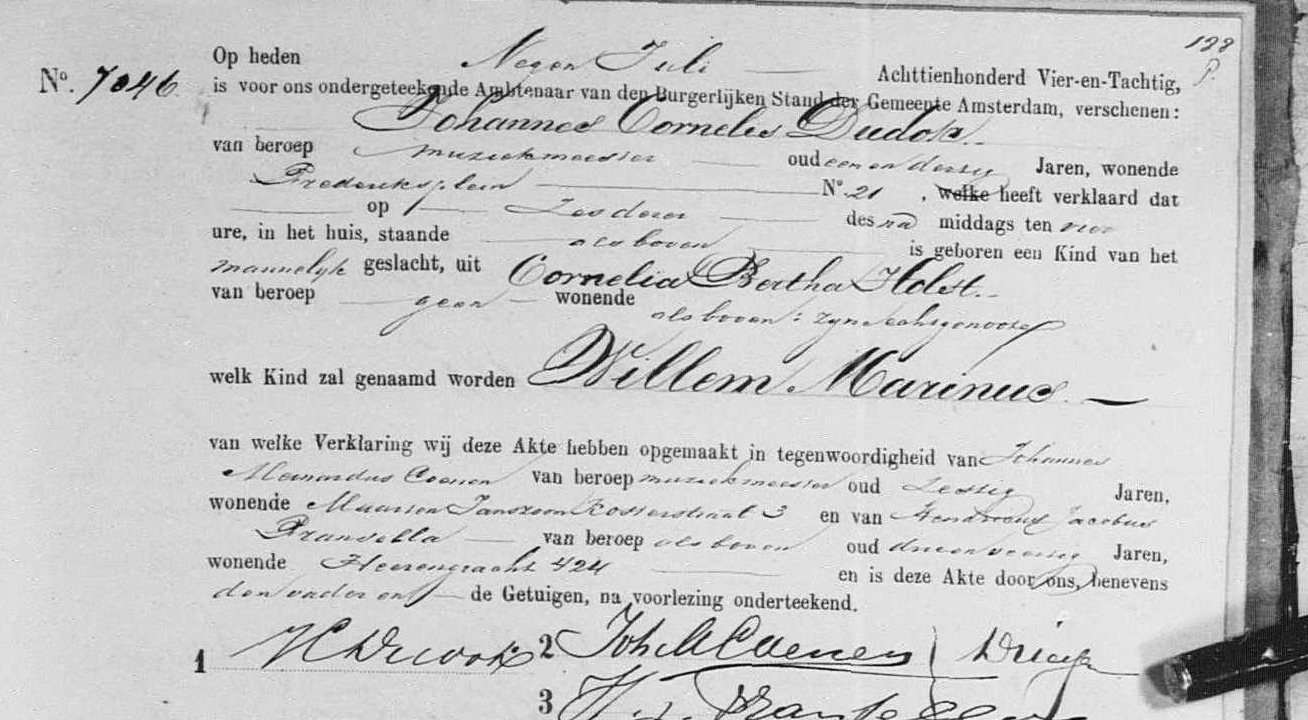 198
Op heden Negen Juli Achttienhonderd Vier-en-Tachtig,
No. 7046 is voor ons ondergeteekende Ambtenaar van den Burgerlijken Stand der Gemeente Amsterdam, verschenen:
Johannes Cornelis Dudok
van beroep muziekmeester oud een en dertig Jaren, wonende
Frederiksplein No. 21, welke heeft verklaard dat
op Zes dezer des na middags ten vier
ure, in het huis, staande als boven is geboren een Kind van het
mannelijk geslacht, uit Cornelia Bertha Holst
van beroep geen wonende als boven: zyne echtgenoote
welk Kind zal genaamd worden Willem Marinus
van welke Verklaring wij deze Akte hebben opgemaakt in tegenwoordigheid van Johannes
Meinardus Coenen van beroep muziekmeester oud Zestig Jaren,
wonende Maarten Janszoon Kosterstraat 3 en van Jacobus
van beroep als boven oud drie en veertig Jaren,
wonende Heerengracht 424 en is deze Akte door ons, benevens
den vader en de Getuigen, na voorlezing onderteekend.
1 2 Joh M Coenen
3